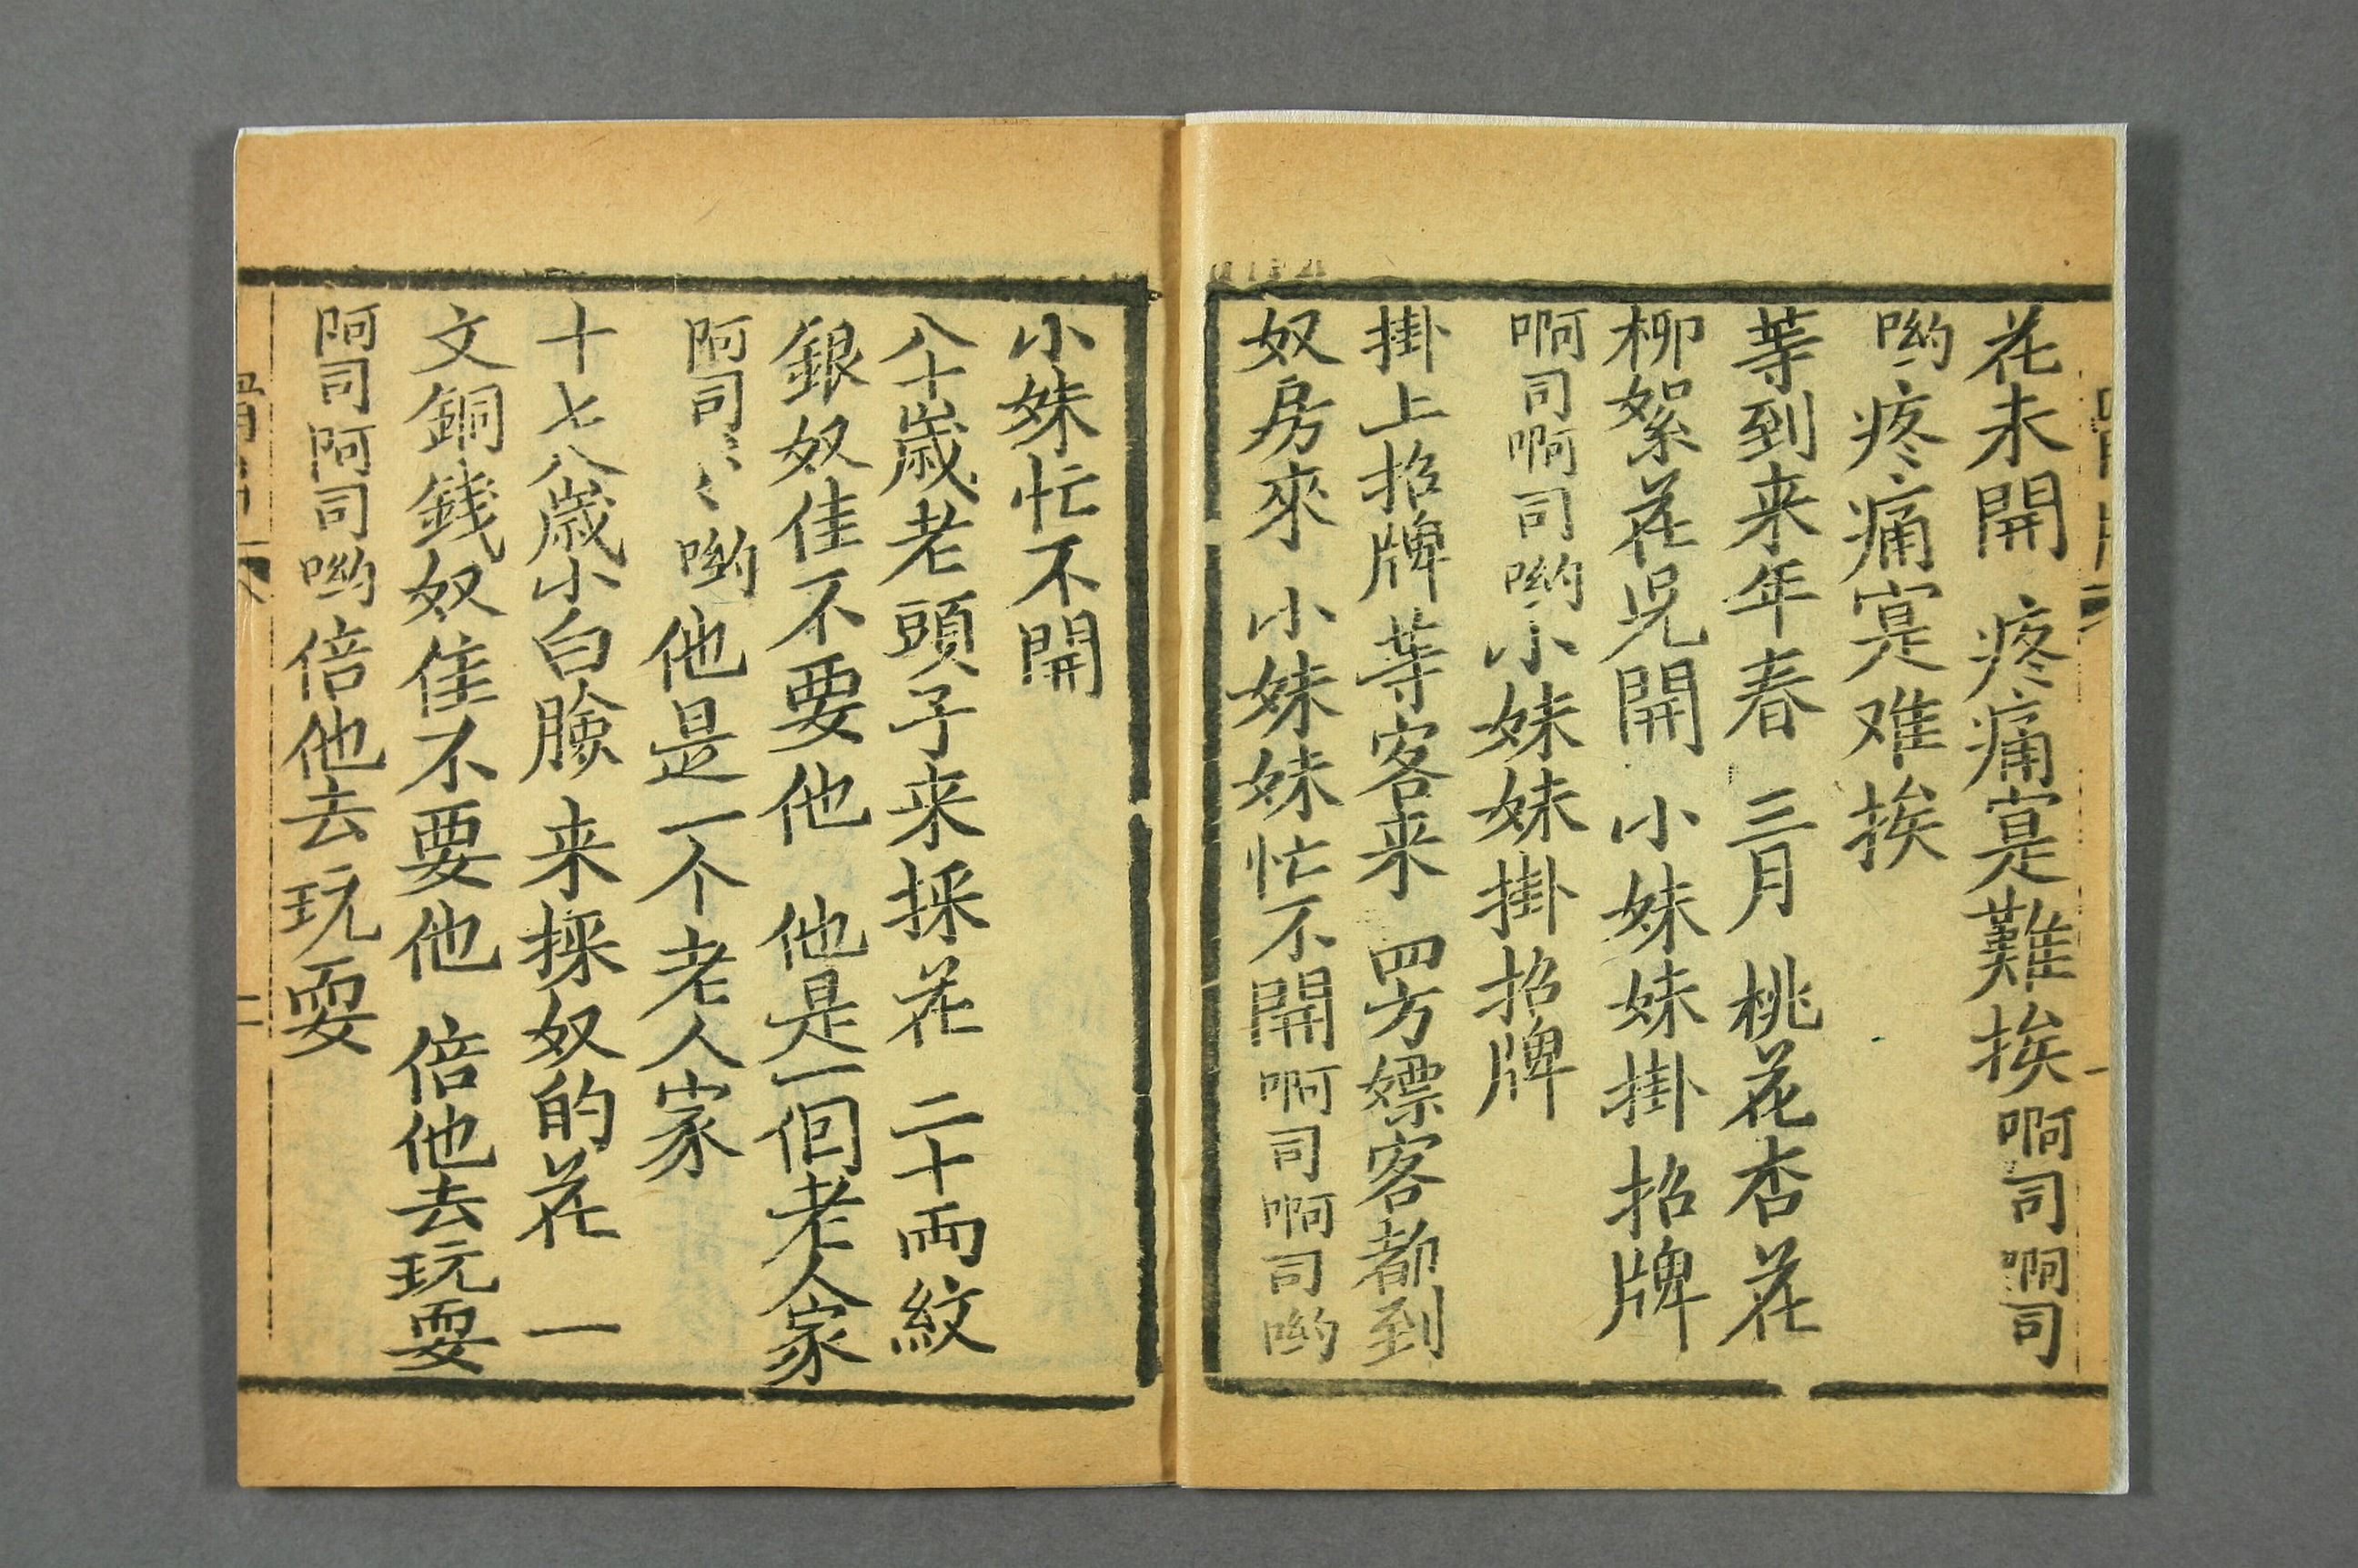 花未開 疼痛寔難挨啊司啊司
哟疼痛寔难挨
等到来年春 三月 桃花杏花
柳絮花児開 小妹妹掛招牌
啊司啊司哟小妹妹掛招牌
掛上招牌等客来 四方嫖客都到
奴房來 小妹妹忙不開啊司啊司哟
小妹忙不開
八十歳老頭子来採花 二十両紋
銀奴佳不要他 他是一個老人家
阿司〻〻哟他是一个老人家
十七八歳小白臉来採奴的花 一
文銅銭奴佳不要他 倍他去玩耍
阿司阿司哟倍他去玩耍